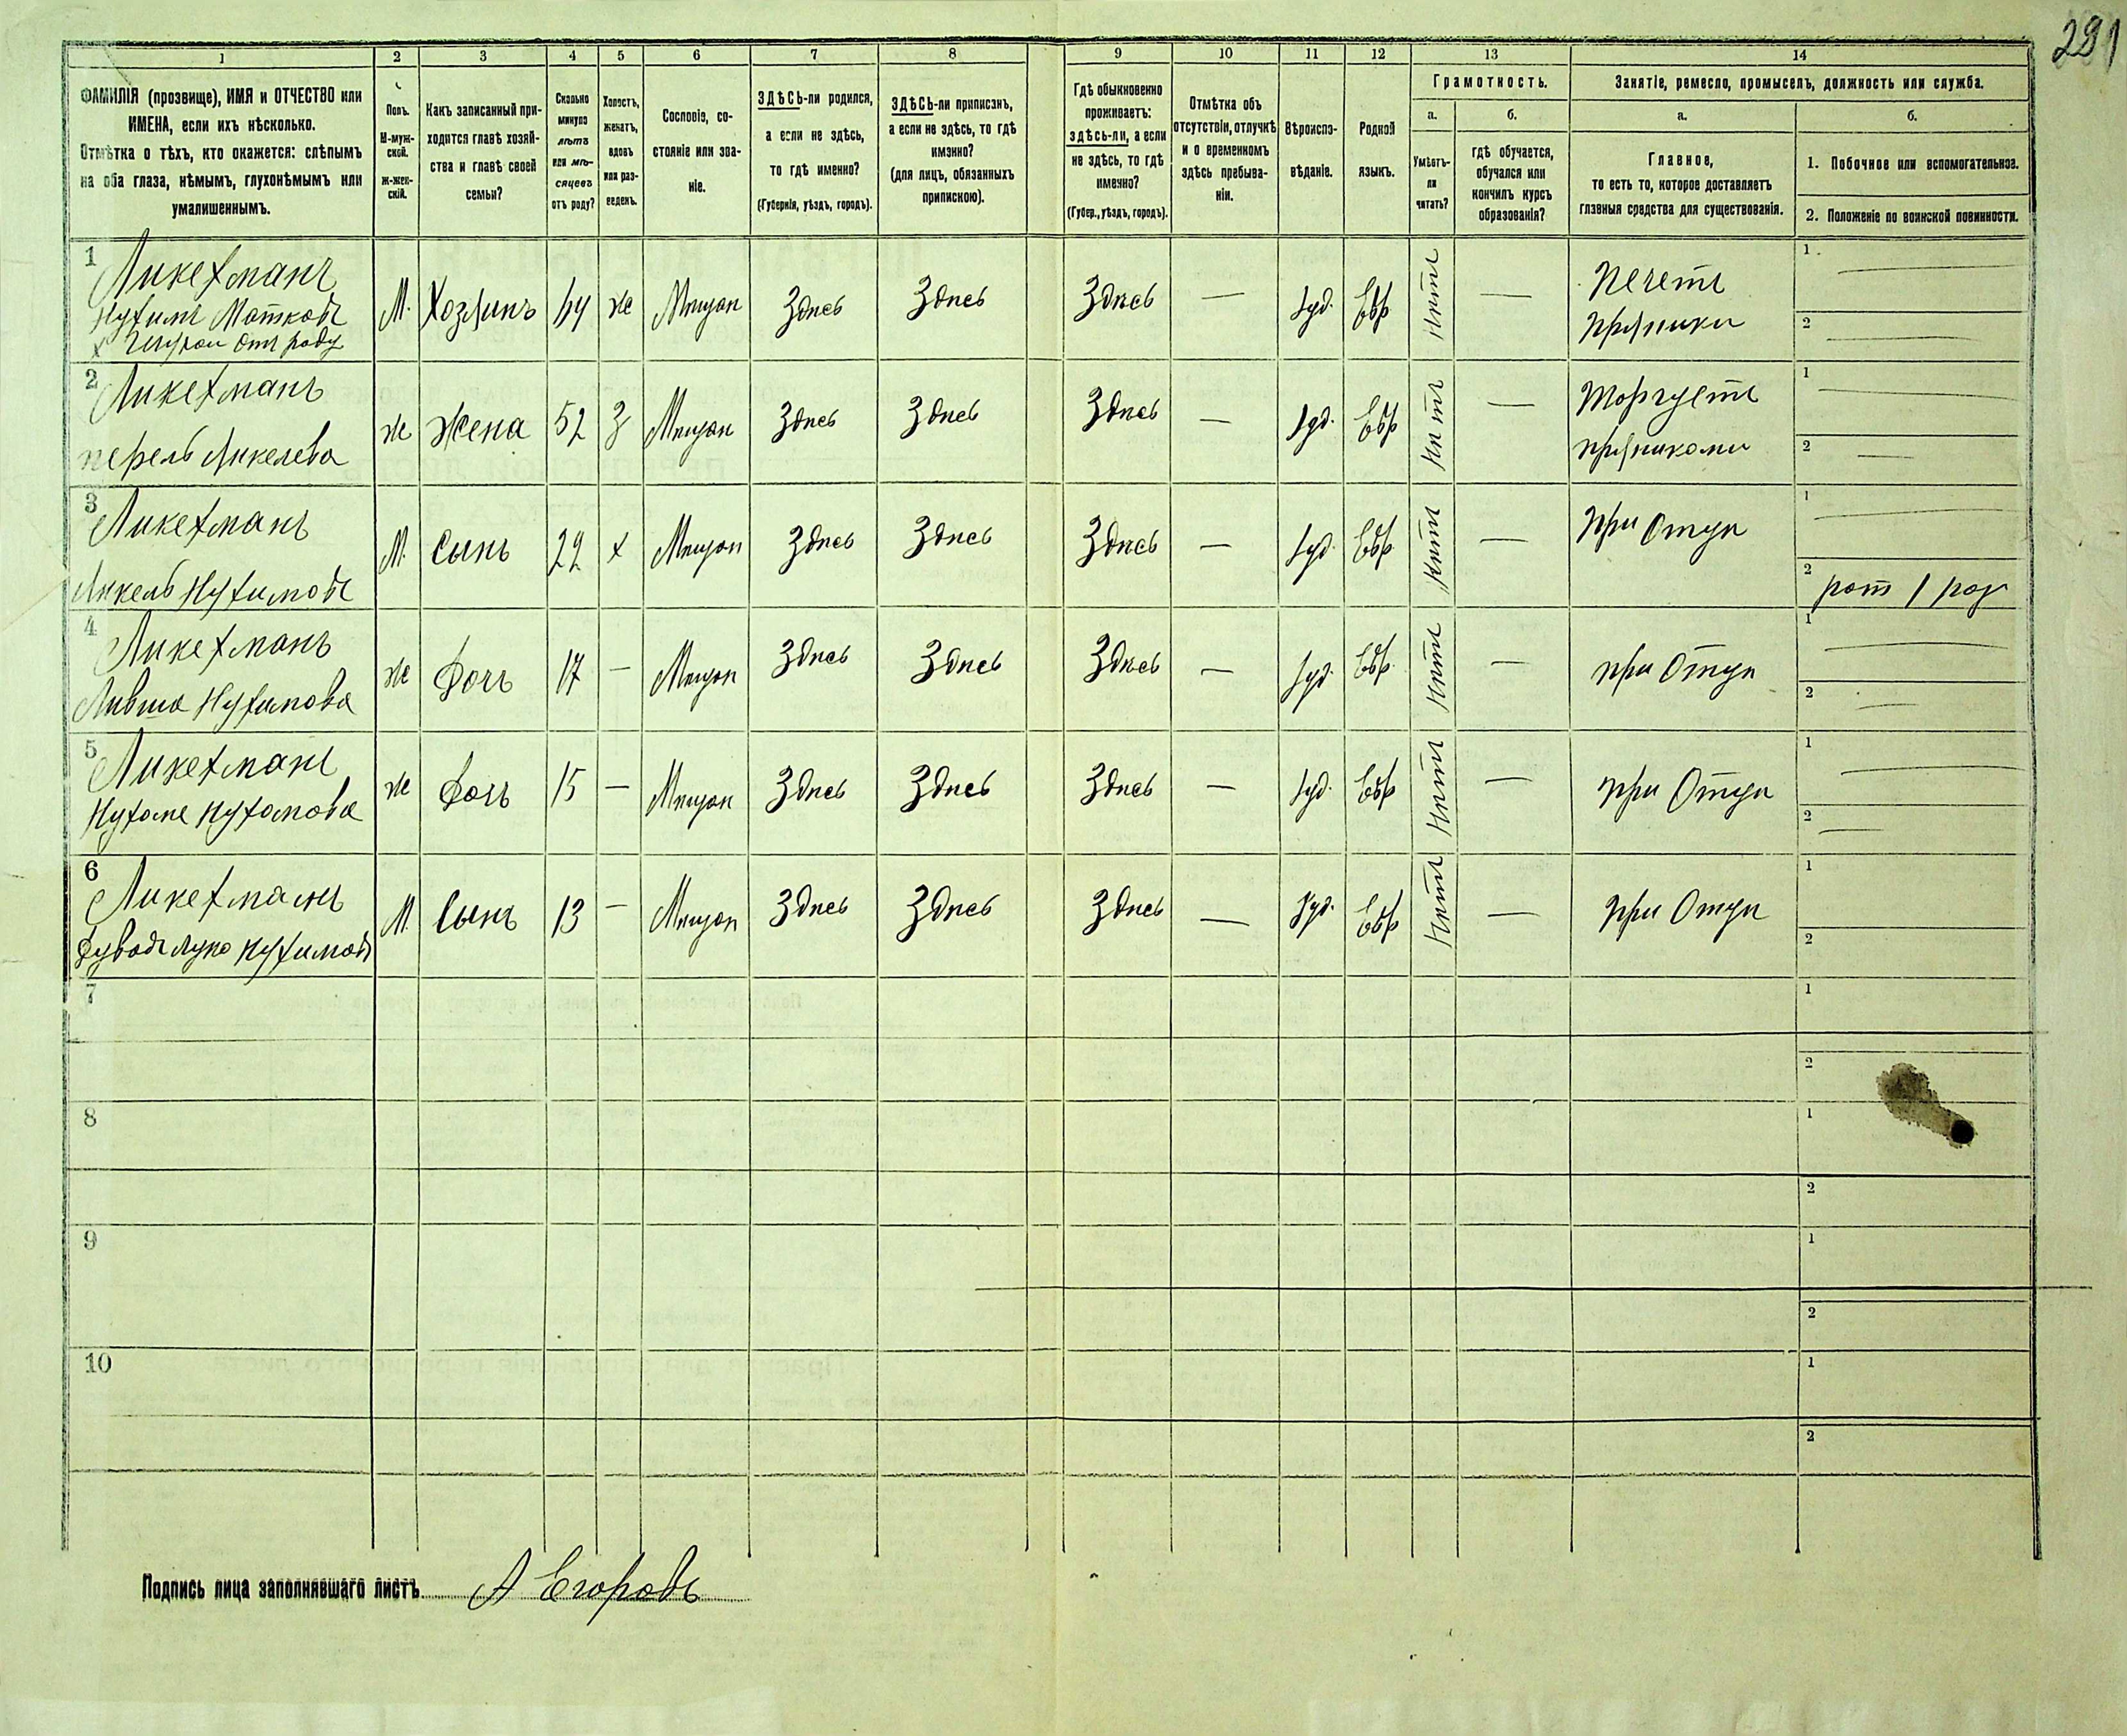 291
1 2 3 4 5 6 7 8 9 10 11 12 13 14
ФАМИЛІЯ (прозвище), ИМЯ и ОТЧЕСТВО или
ИМЕНА, если ихъ нѣсколько.
Отмѣтка о тѣхъ, кто окажется: слѣпымъ
на оба глаза, нѣмымъ, глухонѣмымъ или
умалишеннымъ.
Полъ.
М-муж-
ской.
Ж-жен-
скій.
Какъ записанный при-
ходится главѣ хозяй-
ства и главѣ своей
семьи?
Сколько
минуло
лѣтъ
или мѣ-
сяцевъ
отъ роду?
Холостъ,
женатъ,
вдовъ
или раз-
веденъ.
Сословіе, со-
стояніе или зва-
ніе.
ЗДѢСЬ-ли родился,
а если не здѣсь,
то гдѣ именно?
(Губернія, уѣздъ, городъ).
ЗДѢСЬ-ли приписанъ,
а если не здѣсь, то гдѣ
именно?
(для лицъ, обязанныхъ
припискою).
Гдѣ обыкновенно
проживаетъ:
здѣсь-ли, а если
не здѣсь, то гдѣ
именно?
(Губер., уѣздъ, городъ).
Отмѣтка объ
отсутствіи, отлучкѣ
и о временномъ
здѣсь пребыва-
ніи.
Вѣроиспо-
вѣданіе.
Родной
языкъ.
Грамотность.
а.
Умѣетъ-
ли
читать?
б.
гдѣ обучается,
обучался или
кончилъ курсъ
образованія?
Занятіе, ремесло, промыселъ, должность или служба.
а.
Главное,
то есть то, которое доставляетъ
главныя средства для существованія.
б.
1. Побочное или вспомогательное.
2. Положеніе по воинской повинности.
1 Ликехманъ
Нухимъ
отъ роду
М. Хозяинъ 64 же Мѣщан Здѣсь Здѣсь Здѣсь — Іуд. Евр Нѣтъ —
Печетъ
пряники
1
2
2 Ликехманъ
перель Янкелева
же Жена 52 З Мѣщан Здѣсь Здѣсь Здѣсь — Іуд. Евр Нѣтъ —
Торгуетъ
пряниками
1
2
3 Ликехманъ
Янкель Нухимовъ
М. Сынъ 22 х Мѣщан Здѣсь Здѣсь Здѣсь — Іуд. Евр. Нѣтъ —
при Отцѣ
1
2 рат 1 раз
4 Ликехманъ
Нухимова
же Дочь 17 — Мѣщан Здѣсь Здѣсь Здѣсь — Іуд. Евр. Нѣтъ —
при Отцѣ
1
2
5 Ликехманъ
же Дочь 15 — Мѣщан Здѣсь Здѣсь Здѣсь — Іуд. Евр Нѣтъ —
при Отцѣ
1
2
6 Ликехманъ
Нухимовъ
М. Сынъ 13 — Мѣщан Здѣсь Здѣсь Здѣсь — Іуд. Евр Нѣтъ —
при Отцѣ
1
2
7 1
2
8 1
2
9 1
2
10 1
2
Подпись лица заполнявшаго листъ А Егоровъ